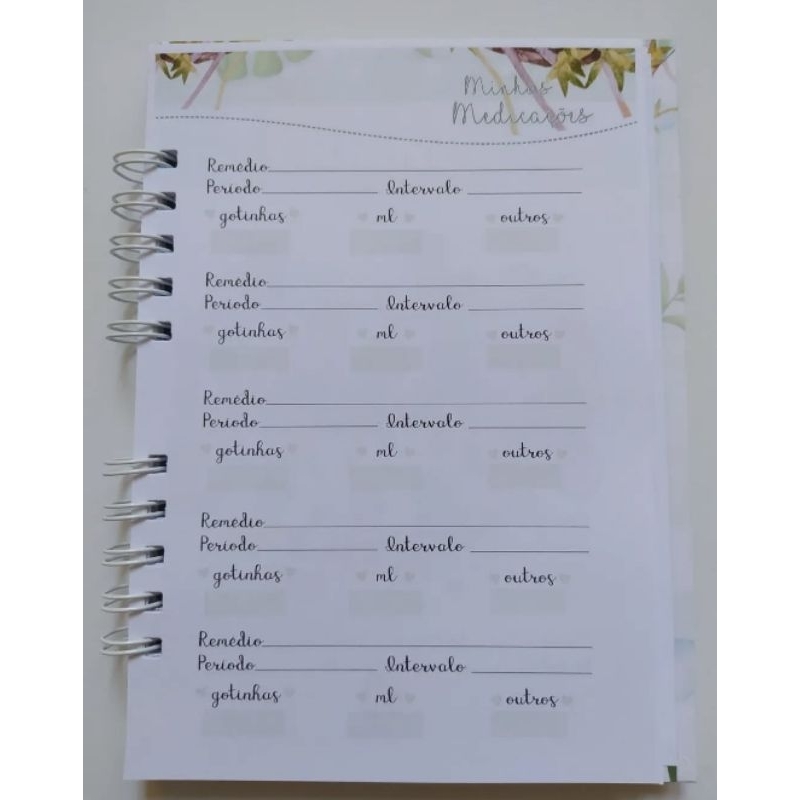 Minhas
Medicações
Remédio
Período Intervalo
gotinhas ml outros
Remédio
Período Intervalo
gotinhas ml outros
Remédio
Período Intervalo
gotinhas ml outros
Remédio
Período Intervalo
gotinhas ml outros
Remédio
Período Intervalo
gotinhas ml outros